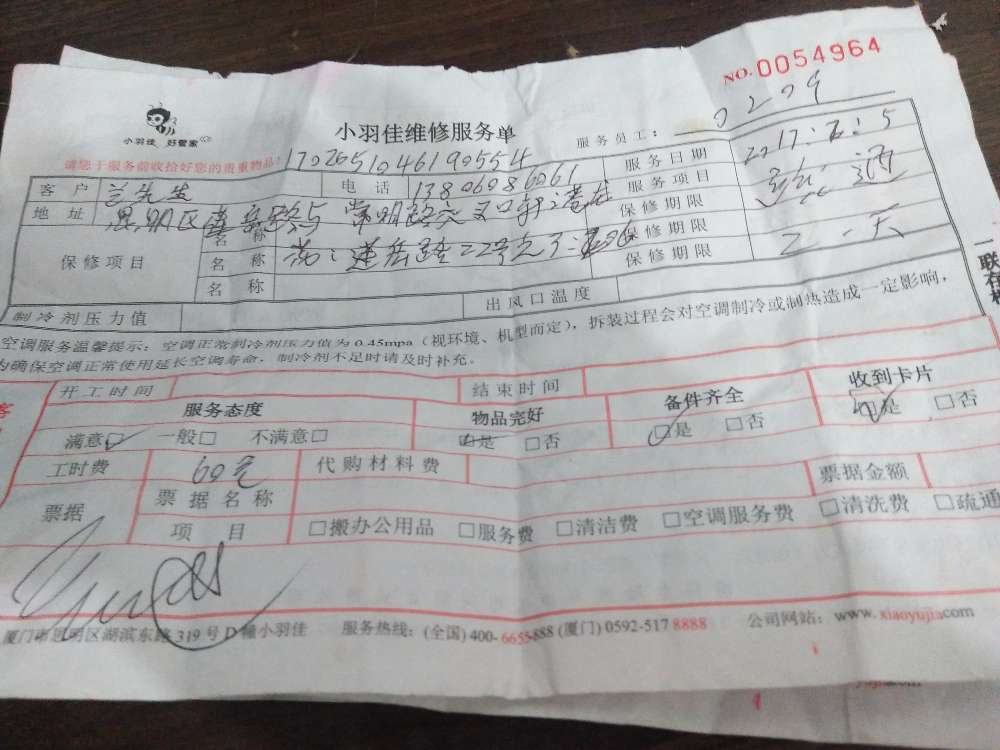 NO.0054964
小羽佳 好管家
小羽佳维修服务单
服务员工: 0209
请您于服务前收拾好您的贵重物品!
客户 兰先生 电话 服务日期 2017:2:5
地址 服务项目
保修项目 名称 保修期限
名称 保修期限
名称 保修期限
制冷剂压力值 出风口温度
空调服务温馨提示:空调正常制冷剂压力值为0.45mpa(视环境、机型而定),拆装过程会对空调制冷或制热造成一定影响,
为确保空调正常使用延长空调寿命,制冷剂不足时请及时补充。
开工时间 结束时间
服务态度 物品完好 备件齐全 收到卡片
满意□ 一般□ 不满意□ □是 □否 □是 □否 □是 □否
工时费 60元 代购材料费
票据 票据名称 票据金额
项目 □搬办公用品 □服务费 □清洁费 □空调服务费 □清洗费 □疏通
厦门市思明区湖滨东路319号D幢小羽佳 服务热线:(全国)400-6655-888 (厦门)0592-517 8888 公司网站:www.xiaoyujia.com